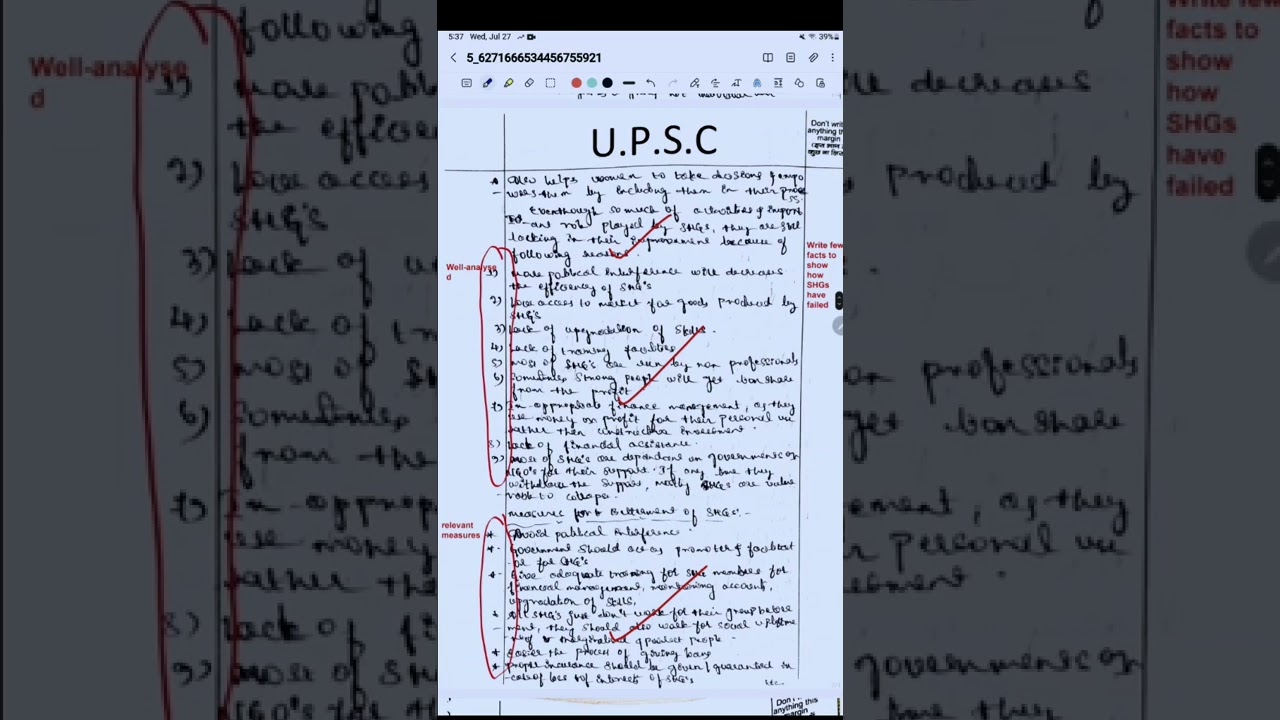 5:37 Wed, Jul 27
39%
5_6271666534456755921
U.P.S.C
Don't write anything this margin
* Also helps women to take decisions & empo
- wers them by including them in their process.
Eventhough so much of activities & import
- ant role played by SHGs, they are still
lacking in their improvement because of
following reasons.
Well-analysed
Write few facts to show how SHGs have failed
1) more political interference will decreases
the efficiency of SHG's
2) Low access to market for goods produced by
SHG's
3) Lack of upgradation of skills.
4) Lack of training facilities
5) most of SHG's are run by non professionals
6) Sometimes strong people will get lion share
from the profit
7) In appropriate finance management, as they
use money on profit for their personal use
rather than constructive investment.
8) Lack of financial assistance.
9) most of SHG's are dependent on governments or
NGO's for their support. If any time they
withdraw the support, mostly SHGs are vulne
- rable to collapse.
measures for Betterment of SHGs:-
relevant measures
* Avoid political interference.
* - government should act as promoter & facilitat
or for SHG's
* - Give adequate training for SHG members for
financial management, maintaining account,
upgradation of skills,
* All SHG's just don't work for their group better
- ment, they should also work for social upliftme
nt of marginalised & poorest people -
* easier the process of giving loans
* proper insurance should be given / guaranteed in
case of loss of interest of SHG's
etc.
Don't write anything this margin